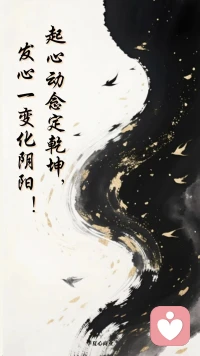 起心动念定乾坤，
发心一变化阴阳！